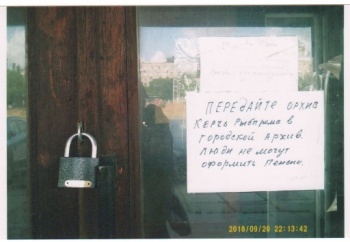 ПЕРЕДАЙТЕ АРХИВ
КЕРЧЬ РЫБПРОМА В
ГОРОДСКОЙ АРХИВ.
ЛЮДИ НЕ МОГУТ
ОФОРМИТЬ ПЕНСИЮ.
2016/09/29 22:13:42